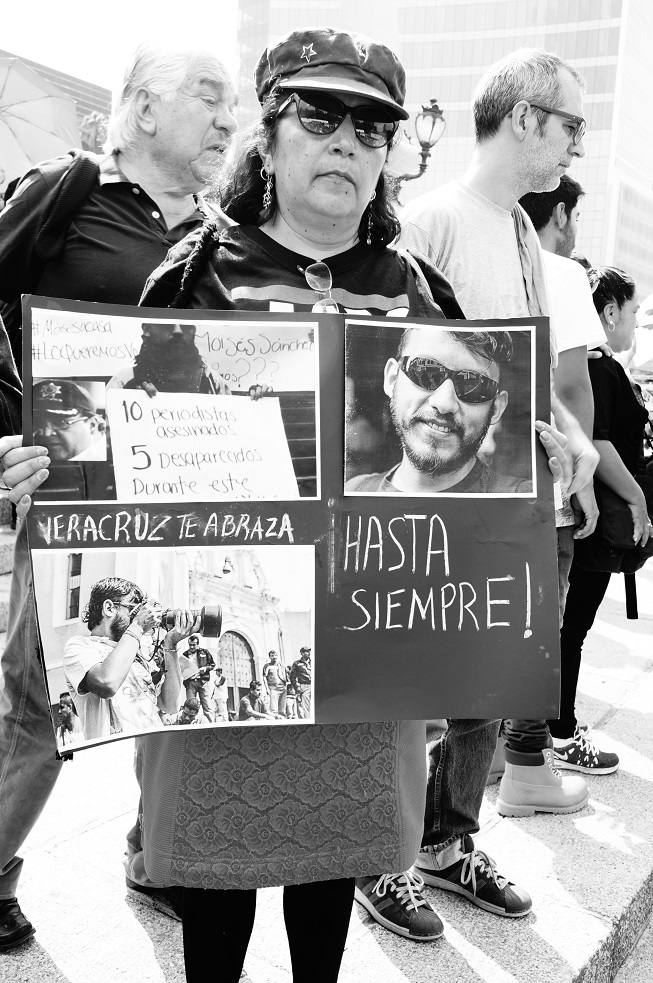 #Moisesacasa
#LosQueremosVi
Moisés Sánchez
10 periodistas
asesinados
5 Desaparecidos
Durante este
VERACRUZ TE ABRAZA
HASTA
SIEMPRE!